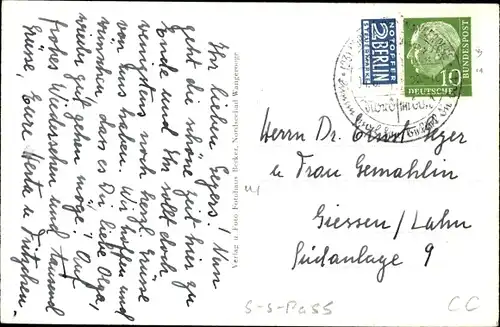 Ihr lieben Gegers! Nun
geht die schöne Zeit hier zu
Ende und Ihr sollt doch
wenigstens noch herzl. Grüsse
von uns haben. Wir hoffen und
wünschen, dass es Dir liebe Olga,
wieder gut gehen möge! Auf
frohes Wiedersehen und tausend
Grüsse, Eure Herta u. Fritzchen.
Verlag u. Foto Fotohaus Becker, Nordseebad Wangerooge
NOTOPFER
2 BERLIN
STEUERMARKE
DEUTSCHE
BUNDESPOST
10
Herrn Dr. Ernst Geger
u Frau Gemahlin
Giessen/Lahn
Südanlage 9
S-S-Pass
CC